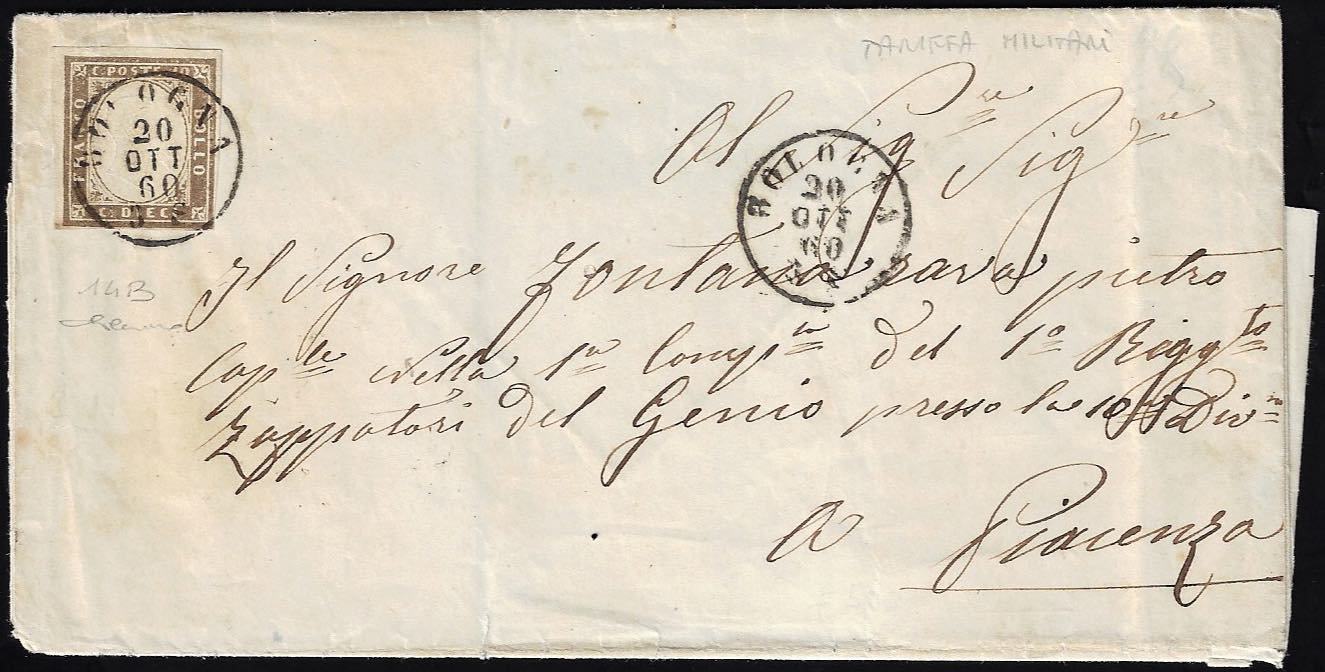 TARIFFA MILITARI
C. POSTE 10
FRANCO
BOLLO
C. DIECI
BOLOGNA
20
OTT
60
Al Sig.re Sig.re
BOLOGNA
20
OTT
60
Il Signore Fontana rava pietro
Cap.le nella 1a Comp.ia del 1o Regg.to
Zappatori del Genio presso la Div.ne
14B
A Piacenza